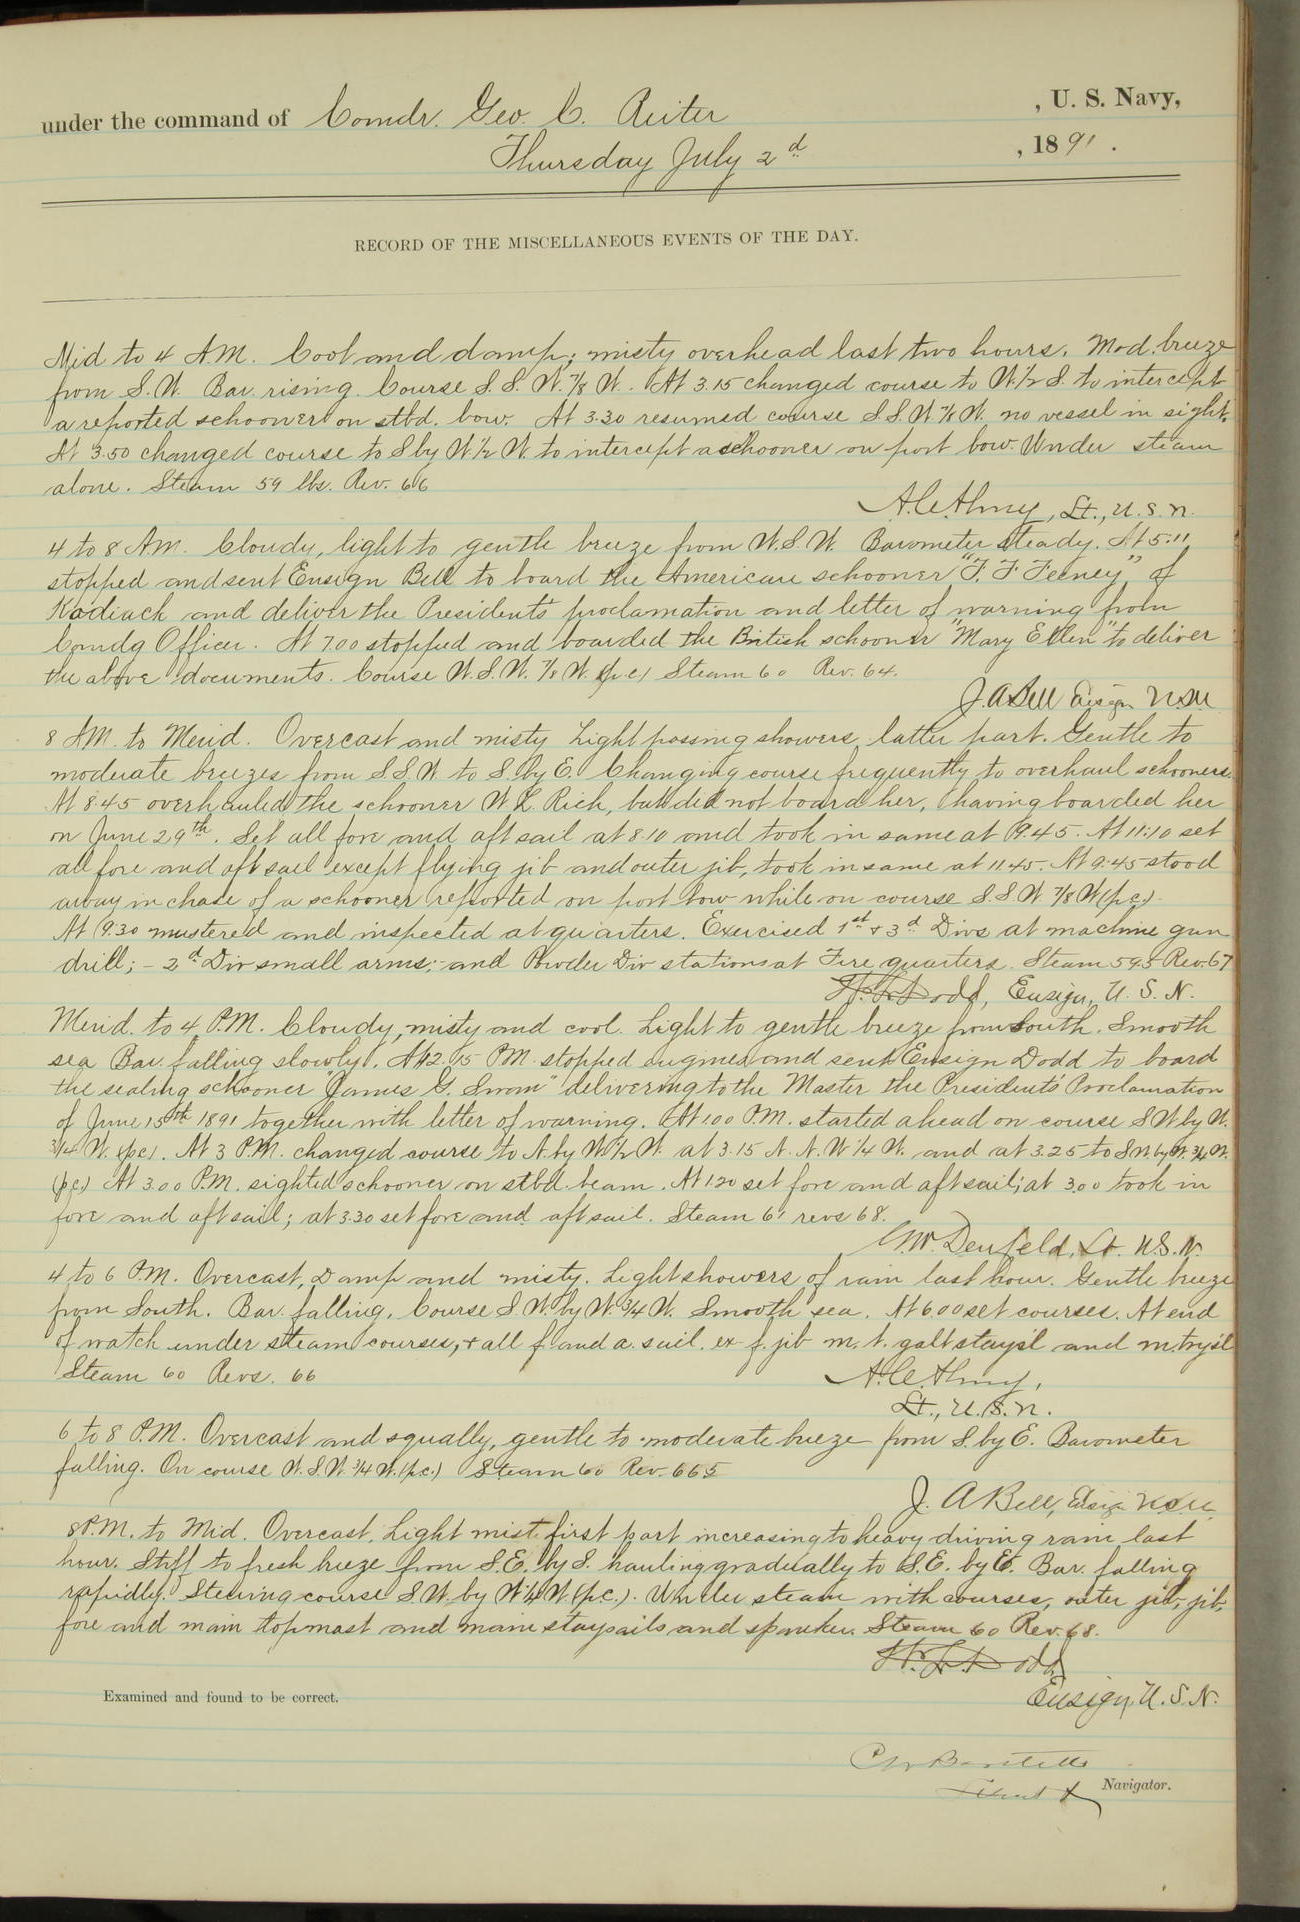 under the command of Comdr. Geo. C. Reiter , U. S. Navy,
Thursday July 2d , 1891 .
RECORD OF THE MISCELLANEOUS EVENTS OF THE DAY.
Mid to 4 AM. Cool and damp; misty overhead last two hours. Mod. breeze
from S.W. Bar. rising. Course S.S.W. 7/8 W. At 3.15 changed course to W. 1/2 S. to intercept
a reported schooner on stbd. bow. At 3.30 resumed course S.S.W. 7/8 W. no vessel in sight.
At 3.50 changed course to S by W. 1/2 W. to intercept a schooner on port bow. Under steam
alone. Steam 59 lbs. Rev. 66
A.C. Almy, Lt., U.S.N.
4 to 8 AM. Cloudy, light to gentle breeze from W.S.W. Barometer steady. At 5:11
stopped and sent Ensign Bell to board the American schooner "F. F. Feeney", of
Kodiack and deliver the President's proclamation and letter of warning from
Comdg Officer. At 7.00 stopped and boarded the British schooner "Mary Ellen" to deliver
the above documents. Course W.S.W. 7/8 W. (p c) Steam 60 Rev. 64.
J. A Bell Ensign U.S.N
8 AM. to Merid. Overcast and misty Light passing showers latter part. Gentle to
moderate breezes from S.S.W. to S. by E. Changing course frequently to overhaul schooners.
At 8.45 overhauled the schooner W. L. Rich, but did not board her, having boarded her
on June 29th. Set all fore and aft sail at 8.10 and took in same at 9.45. At 11:10 set
all fore and aft sail except flying jib and outer jib, took in same at 11.45. At 9.45 stood
away in chase of a schooner reported on port bow while on course S.S.W. 7/8 W (p.c.)
At 9.30 mustered and inspected at quarters. Exercised 1st & 3d Divs at machine gun
drill; - 2d Div small arms; and Powder Div stations at Fire quarters. Steam 59.5 Rev. 67
Dodd, Ensign, U. S. N.
Merid. to 4 P.M. Cloudy, misty and cool. Light to gentle breeze from South. Smooth
sea Bar. falling slowly. At 12.15 PM. stopped engines and sent Ensign Dodd to board
the sealing schooner "James G. Swan" delivering to the Master the Presidents' Proclamation
of June 15th 1891 together with letter of warning. At 1.00 P.M. started ahead on course S W by W.
3/4 W. (p c). At 3 P.M. changed course to N. by W. 1/2 W. at 3.15 N. N. W 1/4 W. and at 3.25 to S W. by W. 3/4 W.
(p.c.) At 3.00 P.M. sighted schooner on stbd. beam. At 1.20 set fore and aft sail; at 3.00 took in
fore and aft sail; at 3.30 set fore and aft sail. Steam 61 revs 68.
Denfeld, Lt. U.S.N.
4 to 6 P.M. Overcast, Damp and misty. Light showers of rain last hour. Gentle breeze
from South. Bar. falling. Course S.W. by W. 3/4 W. Smooth sea. At 6.00 set courses. At end
of watch under steam courses, & all f. and a. sail. ex f. jib m. t. gallt stays'l and m. trys'l
Steam 60 Revs. 66
A.C. Almy,
Lt., U.S.N.
6 to 8 P.M. Overcast and squally, gentle to moderate breeze from S. by E. Barometer
falling. On course W.S.W. 3/4 W. (p.c.) Steam 60 Rev. 66.5
J. A Bell, Ensign U.S.N.
8 P.M. to Mid. Overcast. Light mist first part increasing to heavy driving rain last
hour. Stiff to fresh breeze from S.E. by S. hauling gradually to S.E. by E. Bar. falling
rapidly. Steering course S.W. by W. 3/4 W. (p.c.). Under steam with courses, outer jib, jib,
fore and main topmast and main staysails and spanker. Steam 60 Rev. 68.
Dodd
Ensign, U.S.N.
Examined and found to be correct.
Navigator.